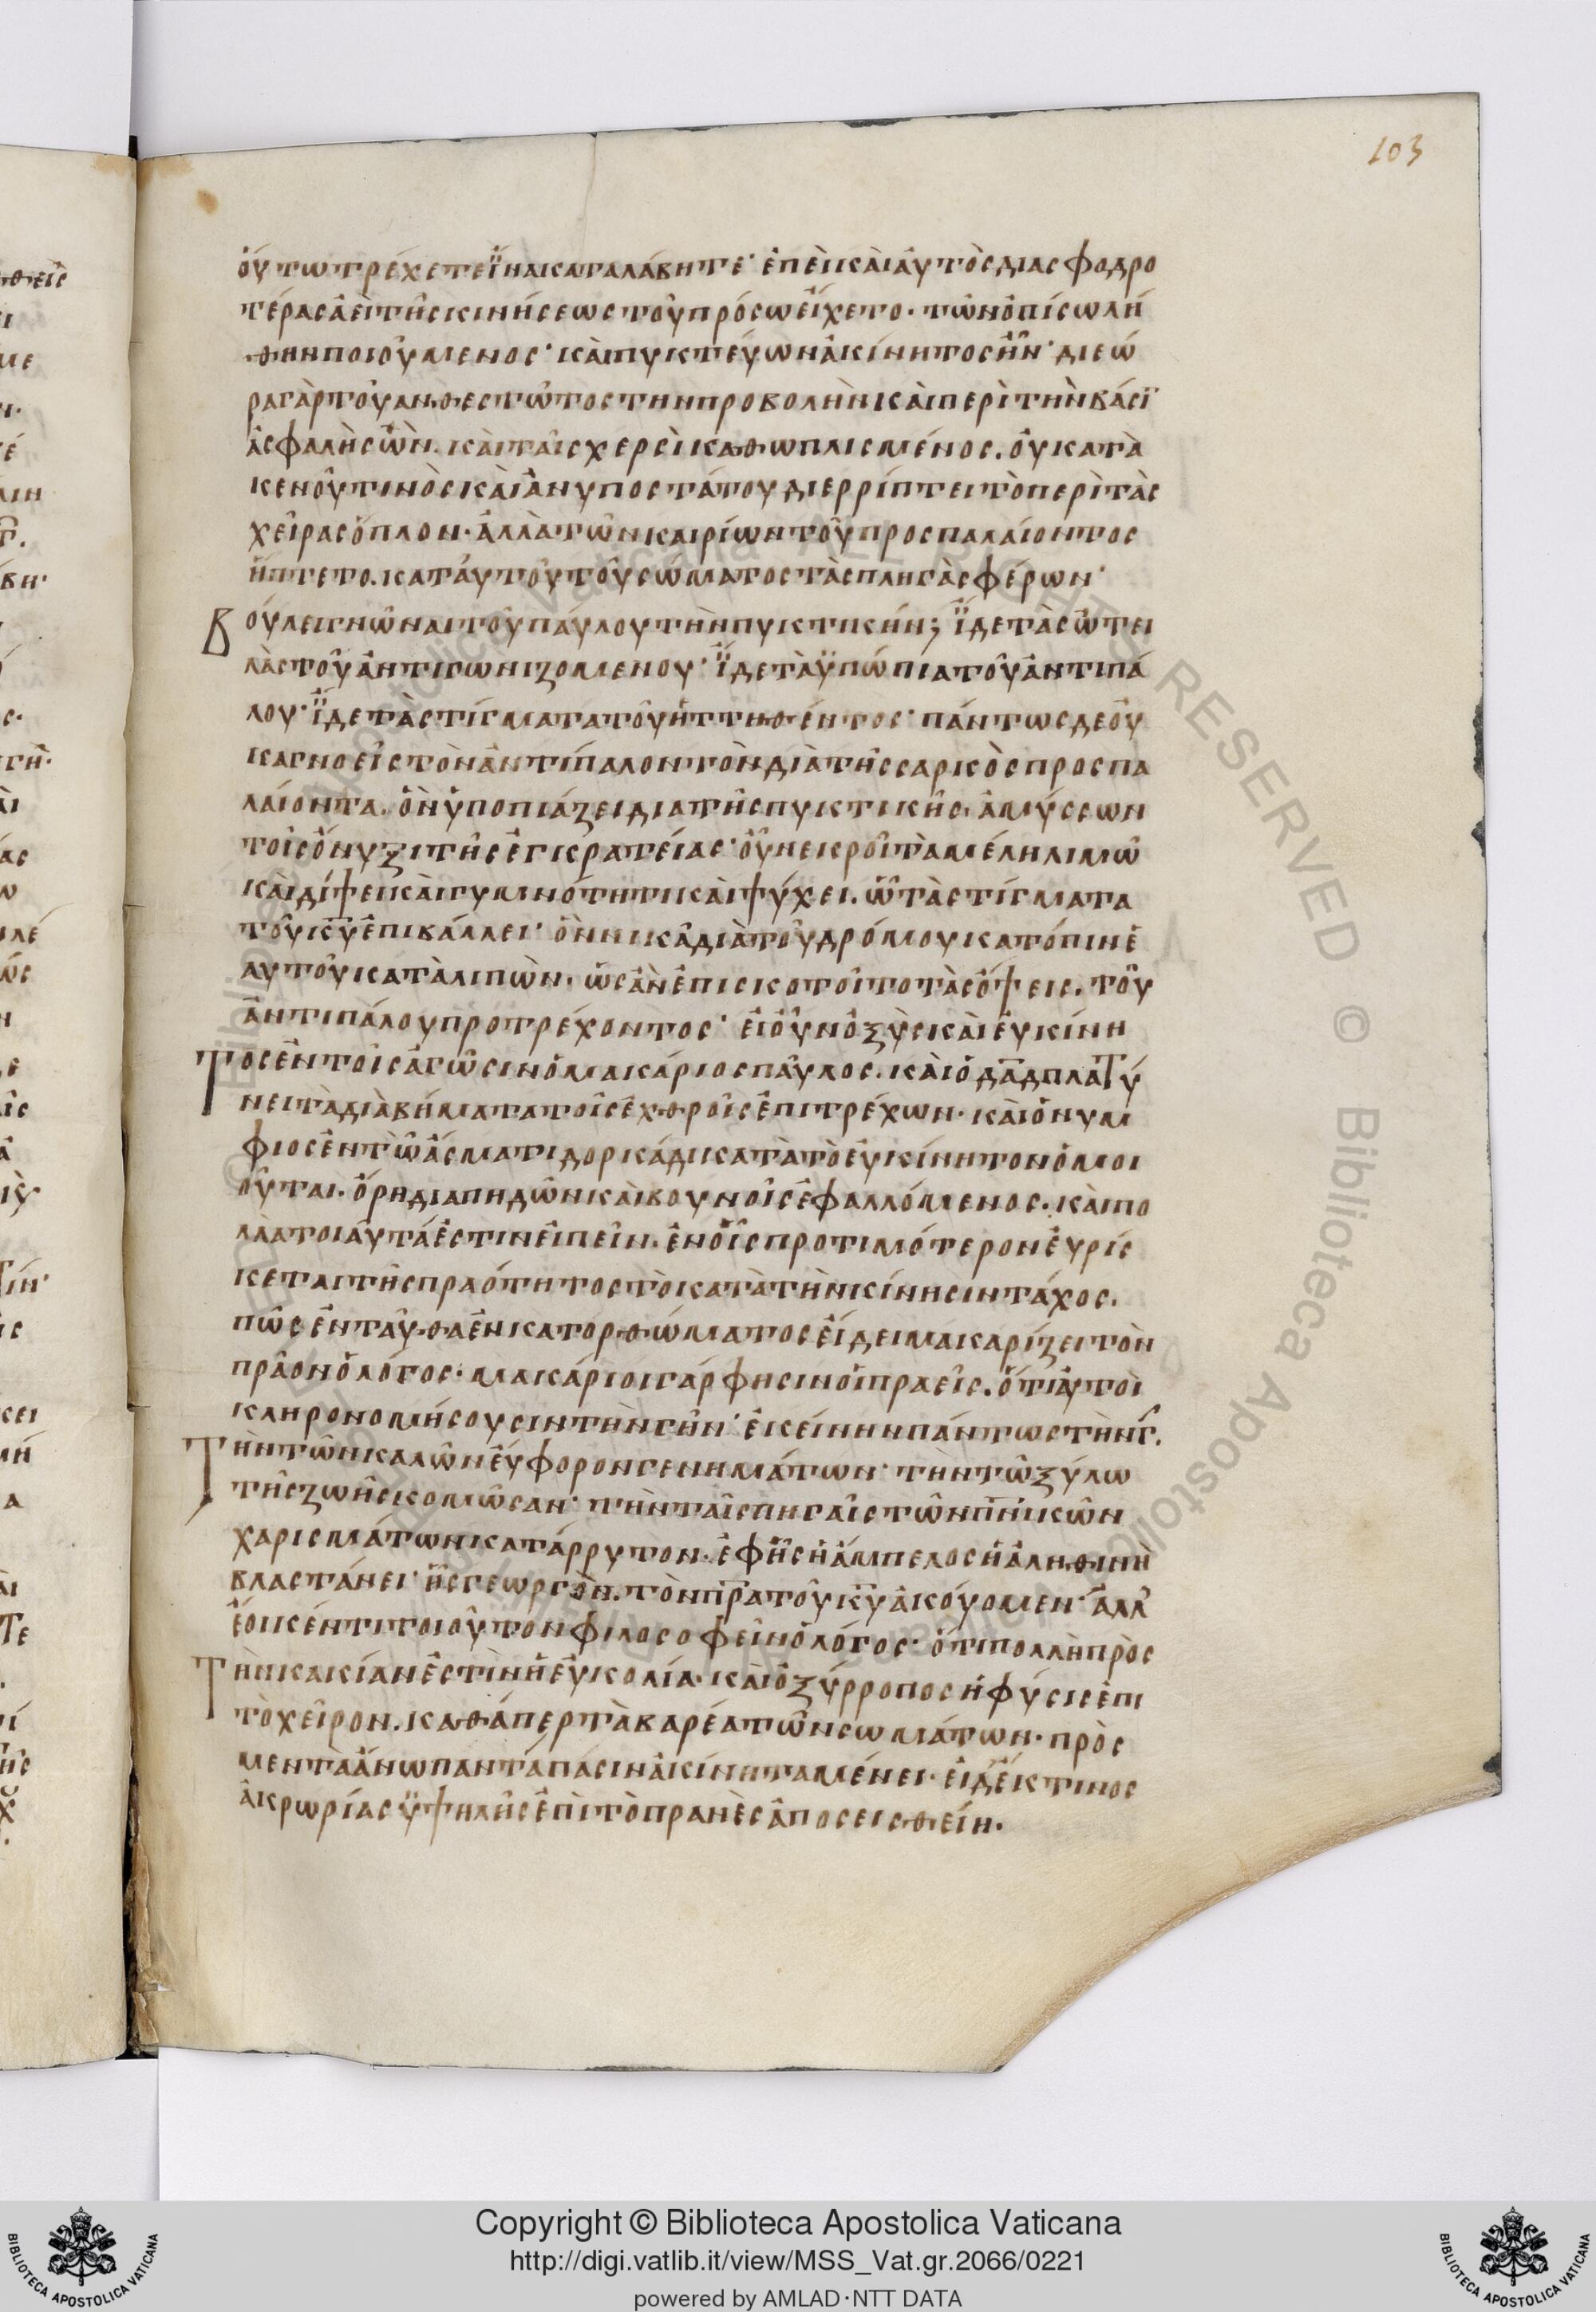 103
οὕτω τρέχετε ἵνα καταλάβητε· ἐπεὶ καὶ αὐτὸς διὰ σφοδρο
τέρας ἀεὶ τῆς κινήσεως τοῦ πρόσω εἴχετο· τῶν ὀπίσω λή
θην ποιούμενος· καὶ πυκτεύων ἀκίνητος ἦν· διεώ
ρα γὰρ τοῦ ανθεστῶτος την προβολὴν καὶ περὶ τὴν βάσϊ
ἀσφαλὴς ὢν. καὶ ταῖς χερσὶ καθωπλισμένος. οὐ κατὰ
κενοῦ τινὸς καὶ ἀνυποστάτου διερρίπτει τὸ περὶ τὰς
χεῖρας ὅπλον· ἀλλὰ τῶν καιρίων τοῦ προσπαλαίοντος
ἥπτετο. κατ' αὐτοῦ τοῦ σώματος τὰς πληγὰς φέρων·
Βούλει γνῶναι τοῦ παύλου τὴν πυκτικήν; ἴδε τὰς ὠτει
λὰς τοῦ ἀντιγωνιζομενου· ἴδε τὰ ὑπώπια τοῦ ἀντιπά
λου· ἴδε τὰ στίγματα τοῦ ἡττηθέντος· πάντως δε οὐ
κ αγνοεῖς τὸν ἀντίπαλον τὸν διὰ τῆς σαρκὸς προσπα
λαίοντα. ὃν ὑποπιάζει δια τῆς πυκτικῆς. ἀμύσσων
τοῖς ὄνυξι τῆς ἐγκρατείας· οὗ νεκροῖ τὰ μέλη λιμῶ
καὶ δίψει καὶ γυμνότητι καὶ ψύχει. ὧ τὰ στίγματα
τοῦ κυ ἐπιβάλλει· ὃν νικᾶ διὰ τοῦ δρόμου κατόπιν ἑ
αυτοῦ καταλιπὼν. ὡς ἂν ἐπισκοτοῖτο τὰς ὄψεις. τοῦ
ἀντιπάλου προτρέχοντος· εἰ οὖν ὀξὺς καὶ εὐκίνη
Τος ἐν τοῖς ἀγῶσιν ὁ μακάριος παῦλος. καὶ ὁ δαδ πλατύ
νει τὰ διὰβήματα τοῖς ἐχθροῖς ἐπιτρέχων· καὶ ὁ νυμ
φιος ἐν τῶ ἄσματι δορκάδι κατὰ τὸ εὐκίνητον ὁμοι
οῦται. ὄρη διαπηδῶν καὶ βουνοῖς ἐφαλλόμενος. καὶ πο
λλα τοιαῦτά ἐστιν εἰπεῖν. ἐν οἷς προτιμότερον εὑρίς
κεται τῆς πραότητος τὸ κατὰ τὴν κίνησιν τάχος.
πῶς ἐνταῦθα ἐν κατορθώματος εἴδει μακαρίζει τὸν
πρᾶον ὁ λόγος· μακάριοι γάρ φησιν οἱ πραεῖς. ὅτι αὐτοὶ
κληρονομήσουσιν τὴν γῆν· ἐκείνην πάντως τὴν γ.
Τὴν τῶν καλῶν εὔφορον γενημάτων· τὴν τῶ ξύλω
τῆς ζωῆς κομῶσαν· τὴν ταῖς πηγαῖς τῶν πνικῶν
χαρισμάτων κατάρρυτον· ἐφ ἧς ἡ ἄμπελος ἡ ἀληθινὴ
βλαστάνει· ἧς γεωργὸν. τὸν πρα τοῦ κυ ἀκούομεν· ἀλλ'
ἔοικέν τι τοιοῦτον φιλοσοφεῖν ὁ λόγος· ὅτι πολλὴ πρὸς
Τὴν κακίαν ἐστὶν ἡ εὐκολία. καὶ ὀξύρροπος ἡ φύσις ἐπι
τὸ χεῖρον. καθάπερ τὰ βαρέα τῶν σωμάτων· πρὸς
μεν τὰ ἄνω παντάπασιν ἀκίνητα μένει· εἰ δ' ἔκ τινος
ἀκρωρίας ὑψηλῆς ἐπὶ τὸ πρανὲς ἀποσεισθείη.
Copyright © Biblioteca Apostolica Vaticana
http://digi.vatlib.it/view/MSS_Vat.gr.2066/0221
powered by AMLAD·NTT DATA